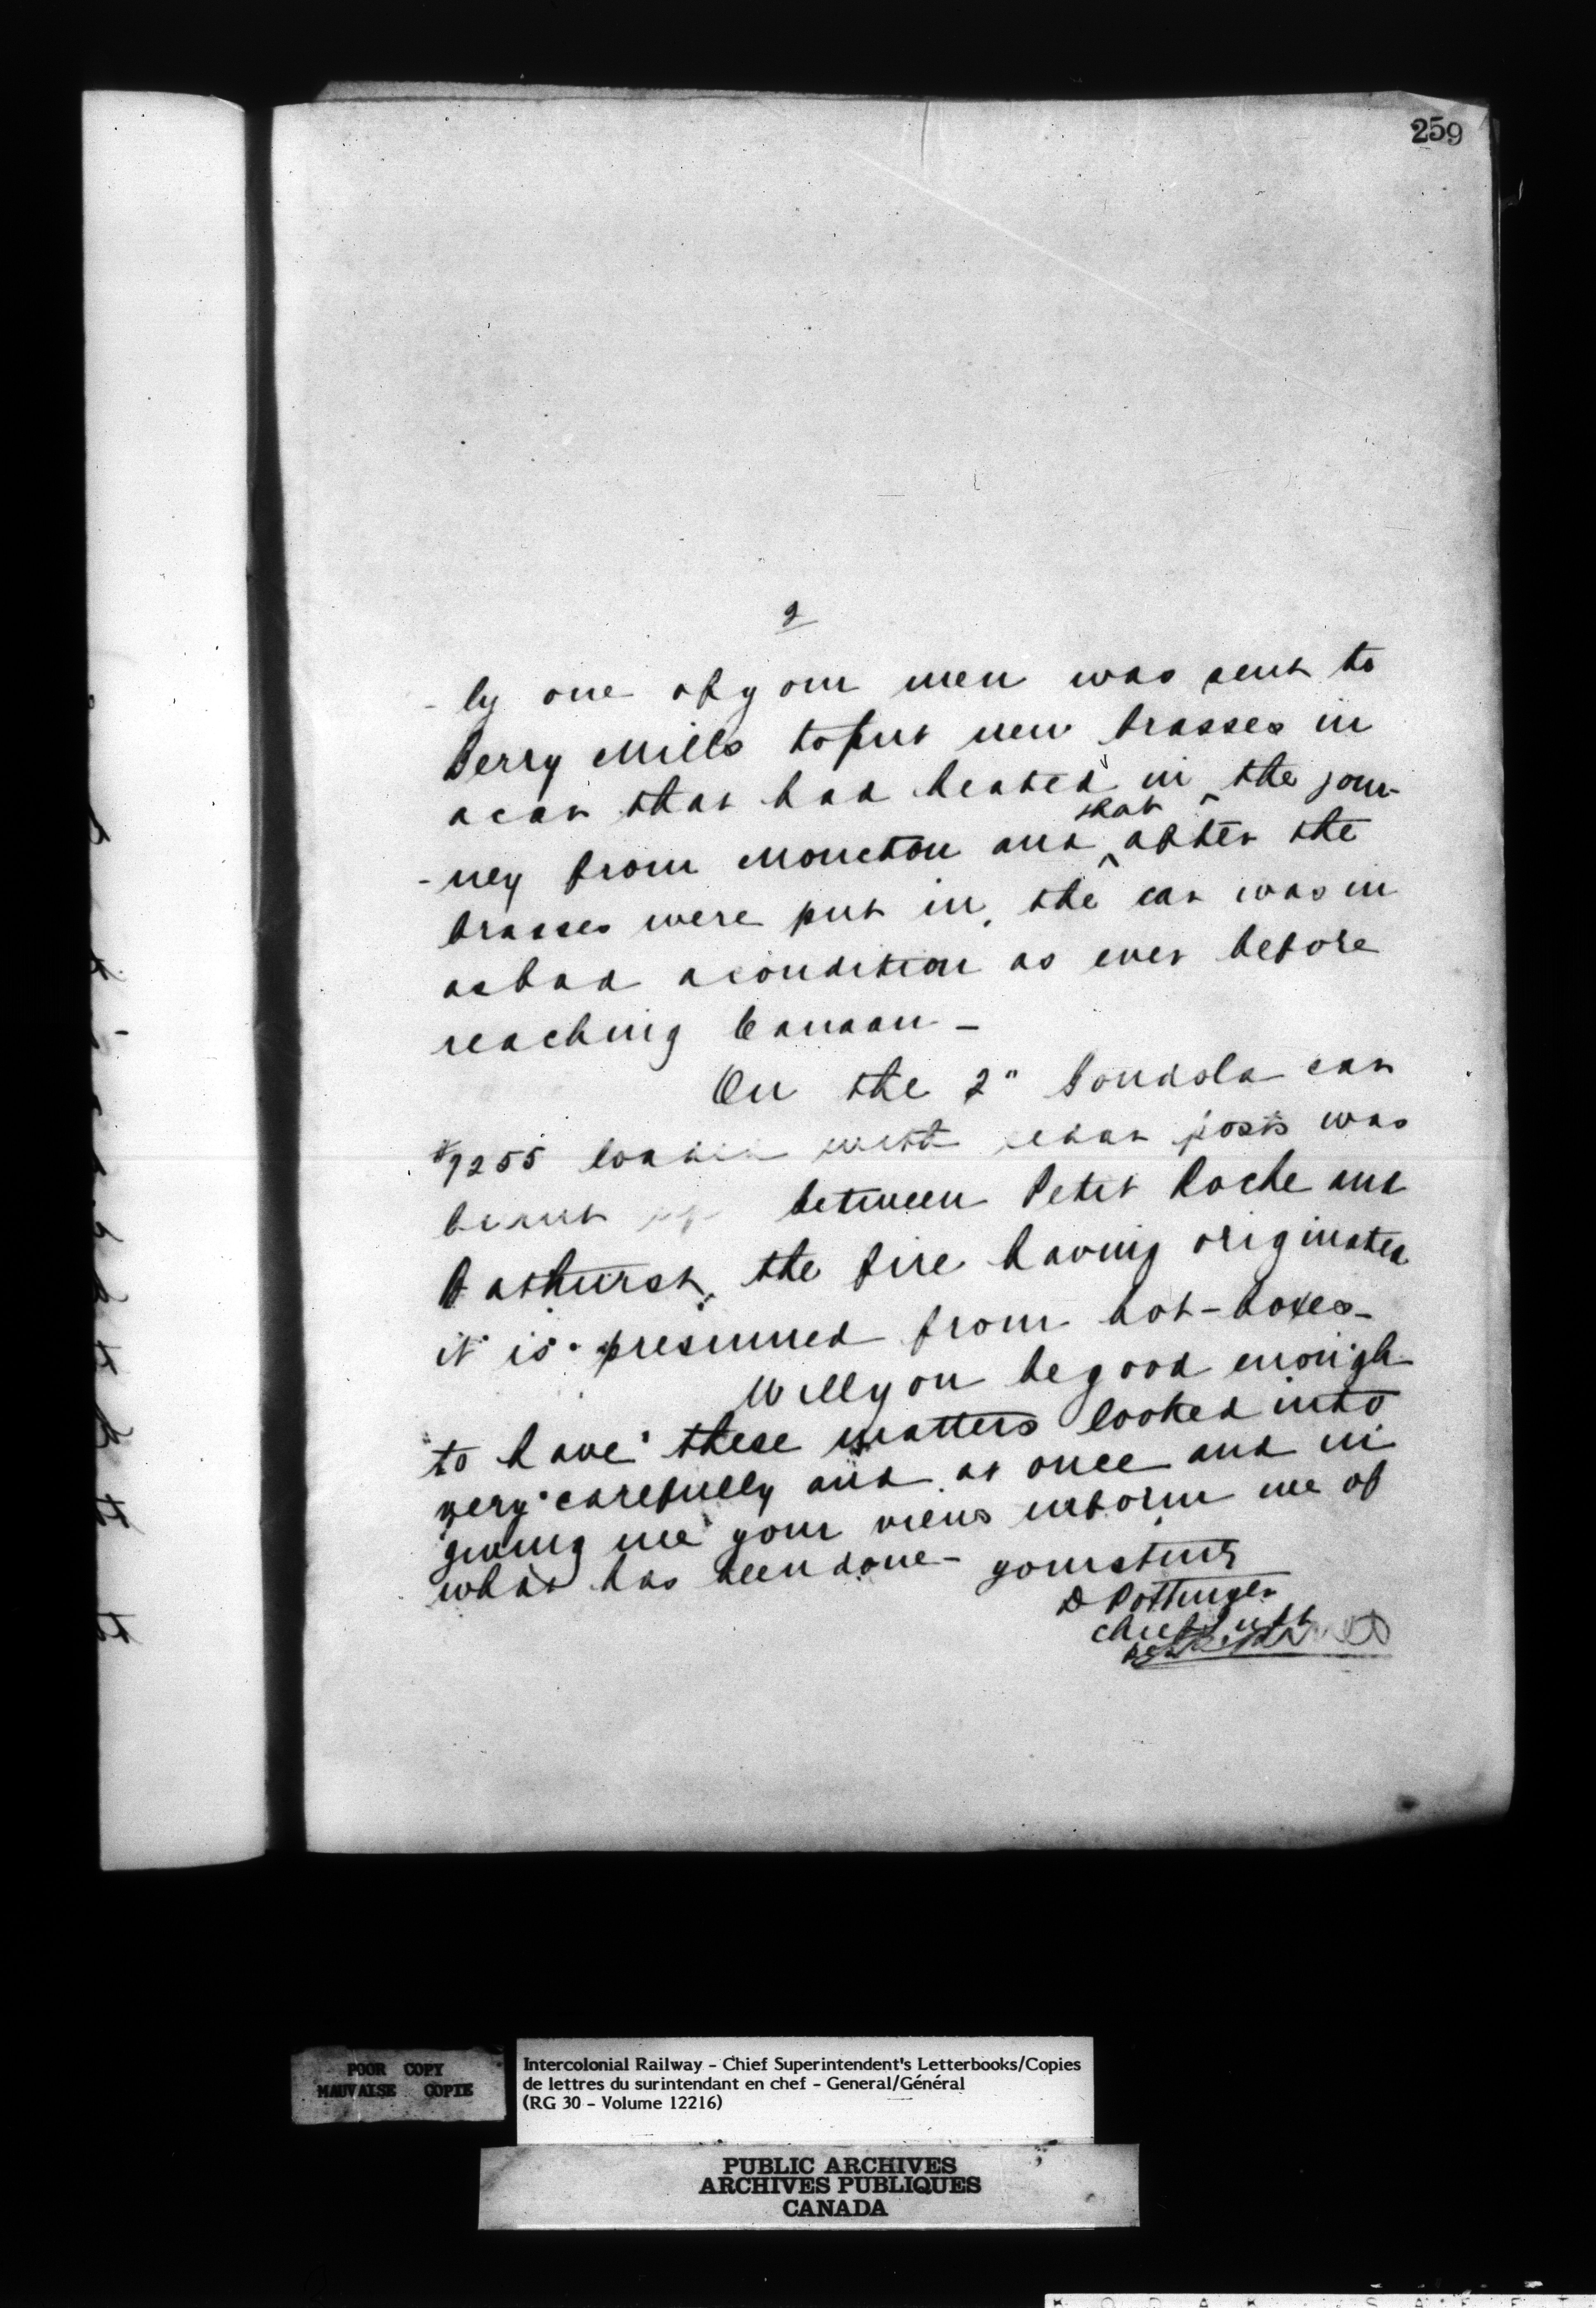 259
2
- ly one of your men was sent to
Berry Mills to put new brasses in
a car that had heated in the jour-
that
-ney from Moncton and ^ after the
brasses were put in, the car was in
as bad a condition as ever before
reaching Canaan -
On the 2" Gondola car
#7255 loaded with cedar posts was
burnt up between Petit Roche and
Bathurst, the fire having originated
it is presumed from hot-boxes -
Will you be good enough
to have these matters looked into
very carefully and at once and in
giving me your views inform me of
what has been done - yours truly
D Pottinger
Chief Supt
POOR COPY
MAUVAISE COPIE
Intercolonial Railway - Chief Superintendent's Letterbooks/Copies
de lettres du surintendant en chef - General/Général
(RG 30 - Volume 12216)
PUBLIC ARCHIVES
ARCHIVES PUBLIQUES
CANADA